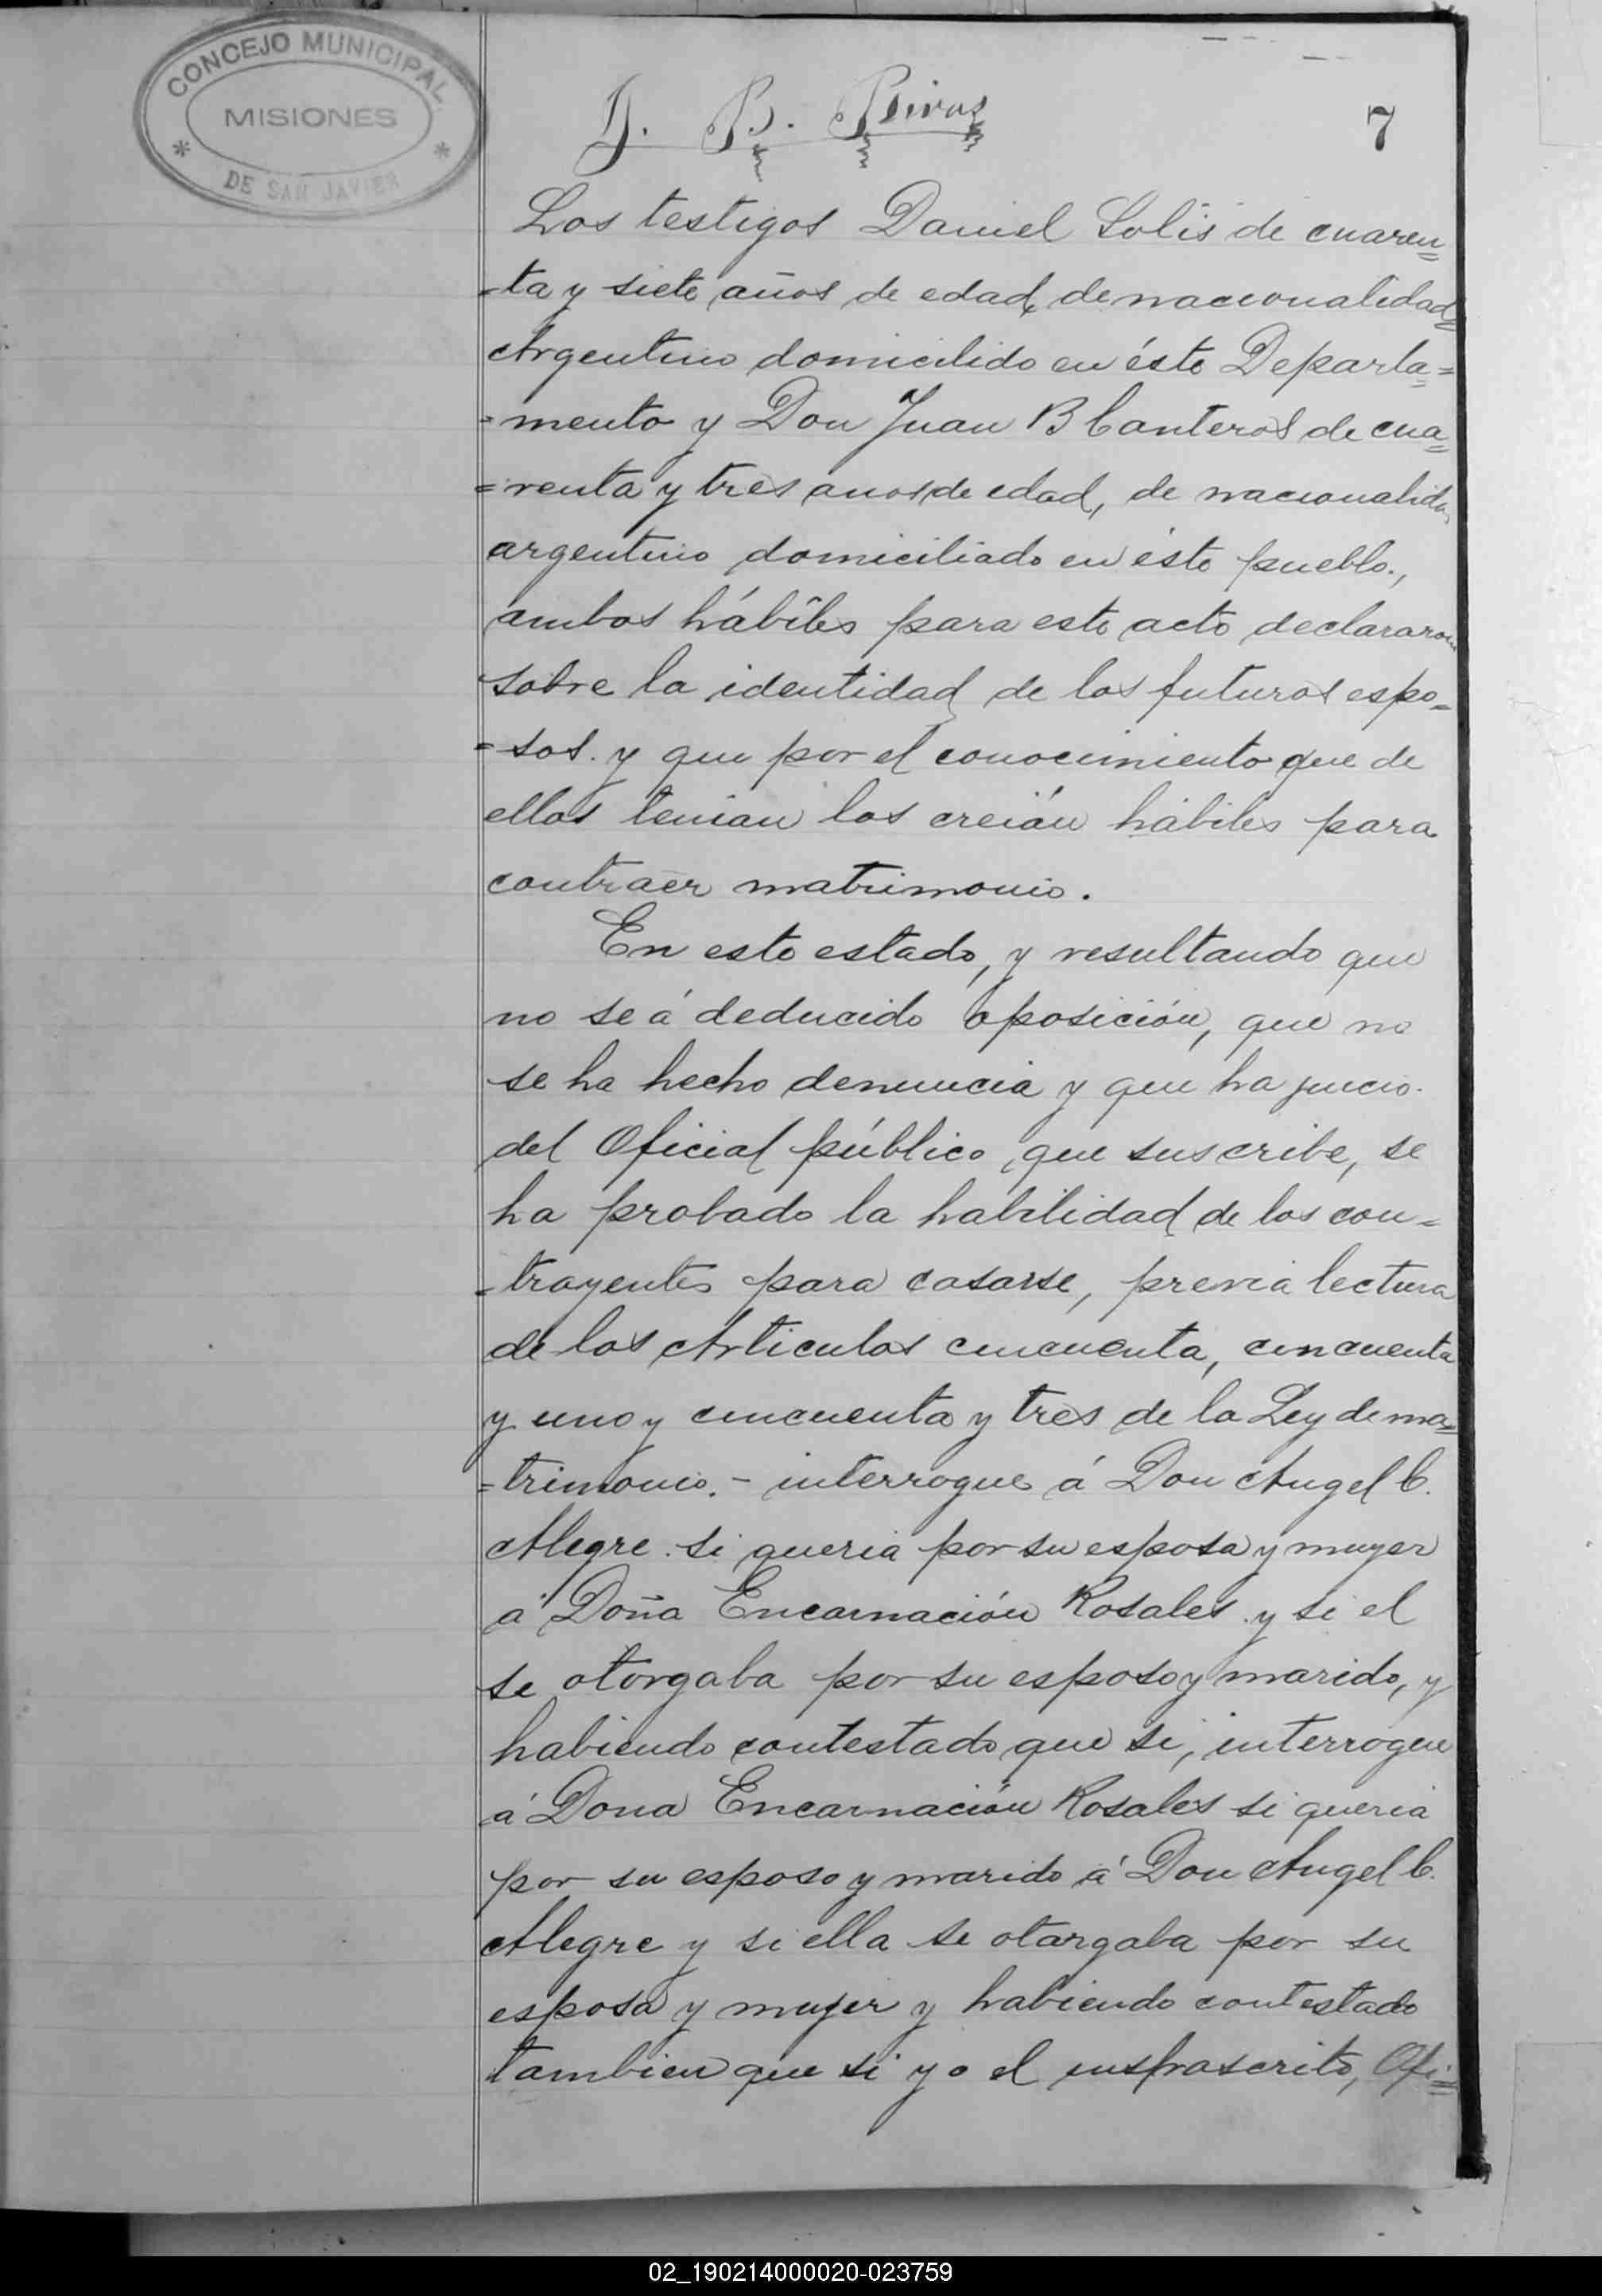 CONCEJO MUNICIPAL
MISIONES
DE SAN JAVIER
B.
7
Los testigos Daniel Solis de cuaren=
=ta y siete años de edad, de nacionalidad
Argentino domicilido en éste Departa=
=mento y Don Juan B Canteros de cua=
=renta y tres anos de edad, de nacionalida
argentino domiciliado en éste pueblo.,
ambos hábiles para este acto declararon
sobre la identidad de los futuros espo=
=sos. y que por el conocimiento que de
ellos tenian los creián hábiles para
contraer matrimonio.
En este estado, y resultando que
no se á deducido oposición, que no
se ha hecho denuncia y que ha juicio
del Oficial público, que suscribe, se
ha probado la habilidad de los con=
=trayentes para casarse, previa lectura
de los Articulos cincuenta, cincuenta
y uno y cincuenta y tres de la Ley de ma=
=trimonio. - interrogue á Don Angel C.
Alegre si queria por su esposa y muyer
á Doña Encarnación Rosales y si el
se otorgaba por su esposo y marido, y
habiendo contestado que si, interrogue
á Dona Encarnación Rosales si queria
por su esposo y marido á Don Angel C.
Alegre y si ella se otargaba por su
esposa y mujer y habiendo contestado
tambien que si yo el insfrascrito, Ofi=
02_190214000020-023759